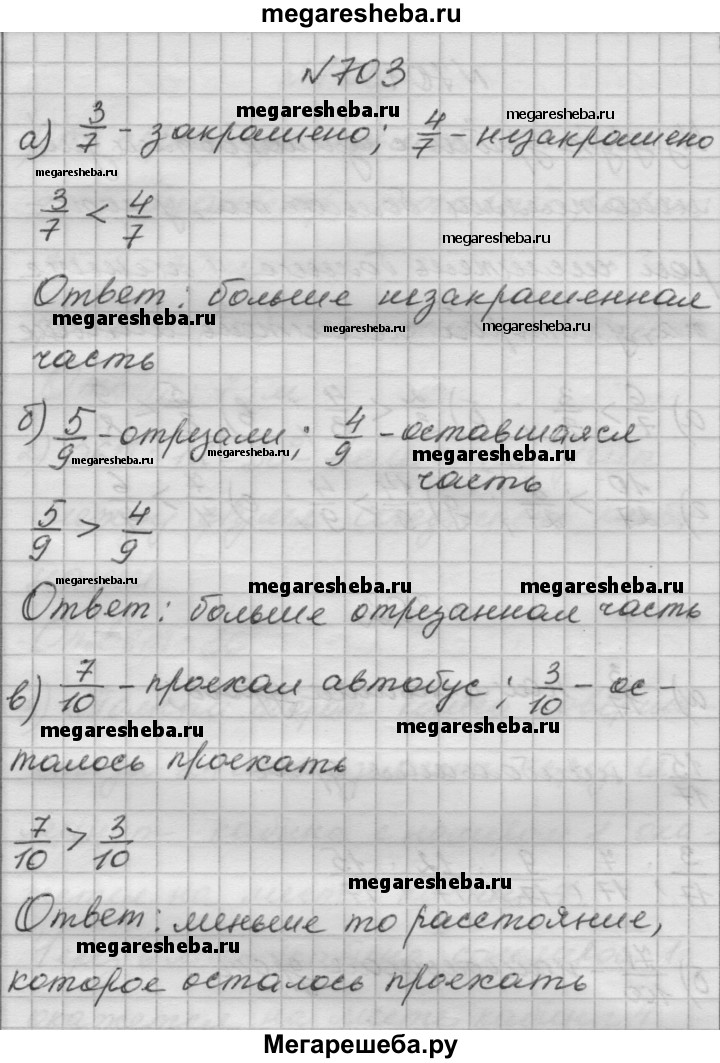 megaresheba.ru
№703
megaresheba.ru megaresheba.ru
а) 3/7 - закрашено; 4/7 - незакрашено
megaresheba.ru
3/7 < 4/7
megaresheba.ru
Ответ: больше незакрашенная
megaresheba.ru megaresheba.ru megaresheba.ru
часть
б) 5/9 - отрезали; 4/9 - оставшаяся
megaresheba.ru megaresheba.ru megaresheba.ru
часть
5/9 > 4/9
megaresheba.ru megaresheba.ru megaresheba.ru
Ответ: больше отрезанная часть
в) 7/10 - проехал автобус; 3/10 - ос-
megaresheba.ru megaresheba.ru
талось проехать
7/10 > 3/10
megaresheba.ru
Ответ: меньше то расстояние,
megaresheba.ru
которое осталось проехать
Мегарешеба.ру